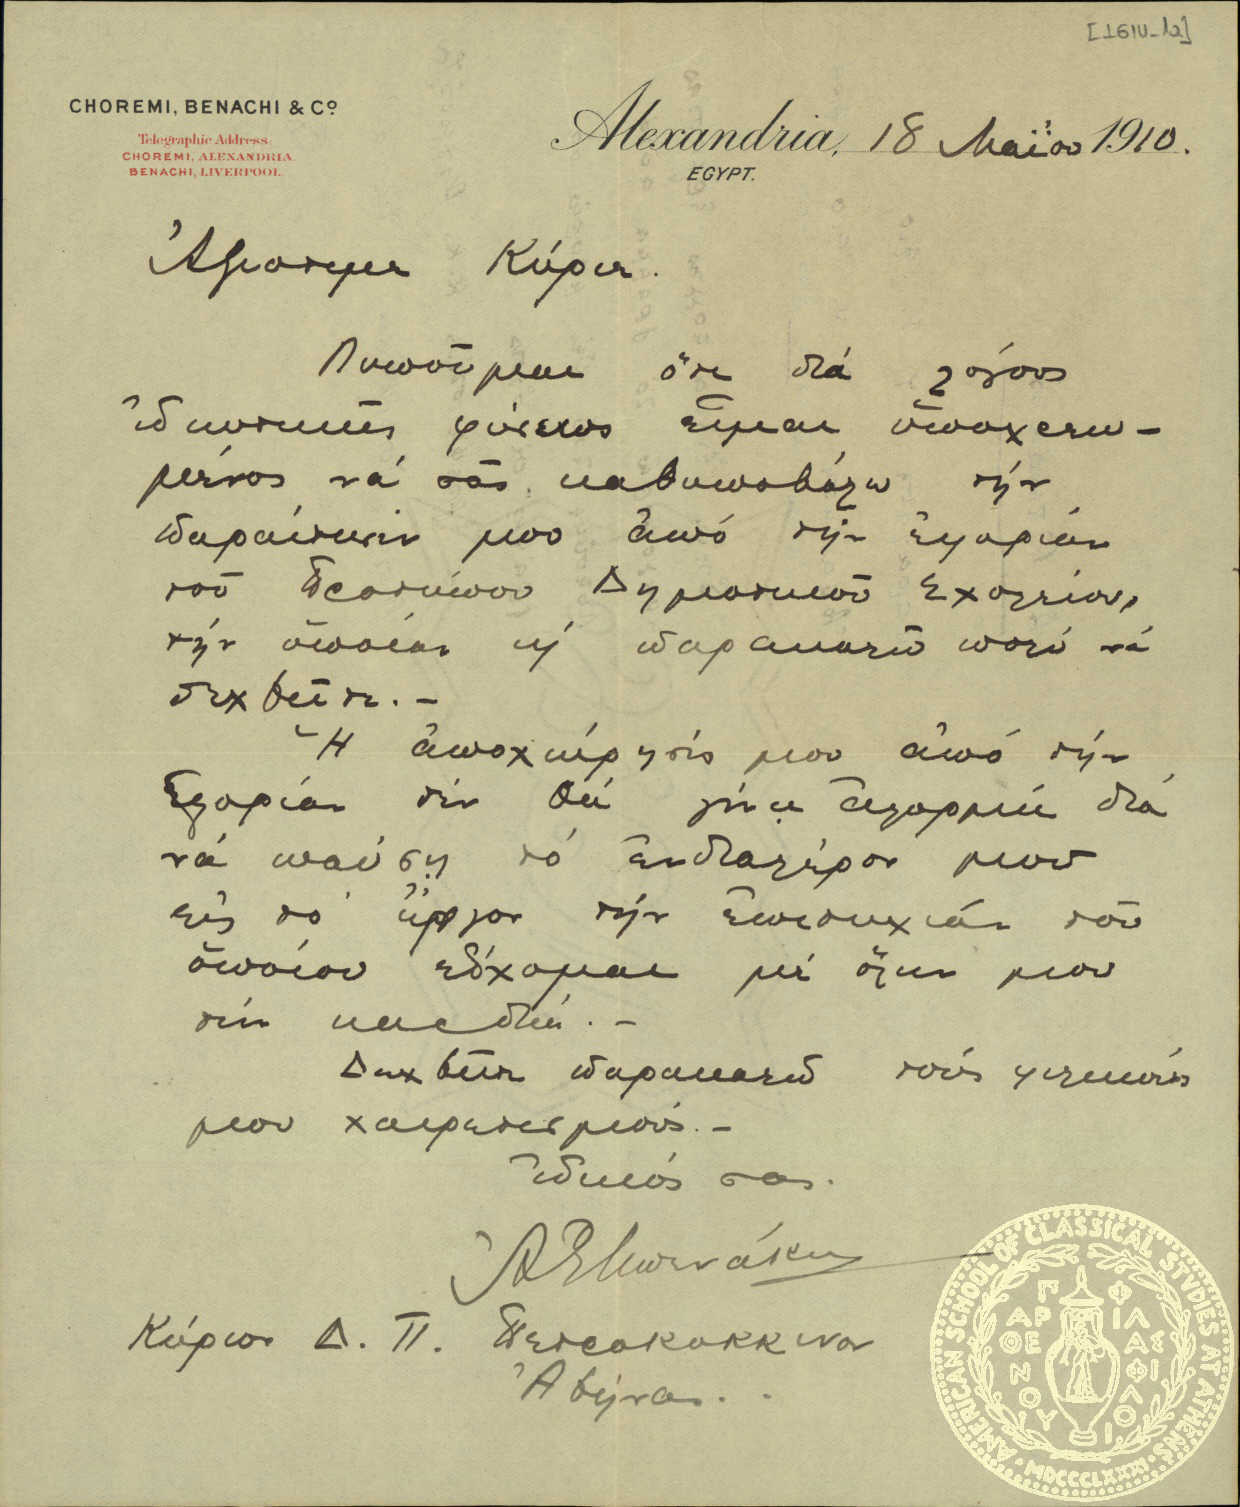 CHOREMI, BENACHI & Cº
Telegraphic Address
CHOREMI, ALEXANDRIA.
BENACHI, LIVERPOOL.
Alexandria, 18 Μαΐου 1910.
EGYPT.
Ἀξιότιμε Κύριε.
Λυποῦμαι ὅτι διά λόγους
ἰδιωτικῆς φύσεως εἶμαι ὑποχρεω-
μένος νά σᾶς καθυποβάλω τήν
παραίτησίν μου ἀπό τήν ἐφορίαν
τοῦ Προτύπου Δημοτικοῦ Σχολείου,
τήν ὁποίαν παρακαλῶ πολύ νά
δεχθῆτε. –
Ἡ ἀποχώρησίς μου ἀπό τήν
Ἐφορίαν δέν θά γίνῃ ἀφορμή διά
νά παύσῃ τό ἐνδιαφέρον μου
εἰς τό ἔργον τήν ἐπιτυχίαν τοῦ
ὁποίου εὔχομαι μέ ὅλην μου
τήν καρδιά. –
Δεχθῆτε παρακαλῶ τούς φιλικούς
μου χαιρετισμούς. –
Ἰδικός σας.
ἈΕΜπενάκη
Κύριον Δ. Π. Πετροκόκκινον
Ἀθήνας.
AMERICAN SCHOOL OF CLASSICAL STUDIES AT ATHENS
MDCCCLXXXI
ΠΑΡΘΕΝΟΥ
ΦΙΛΑΣ
ΦΙΛΟΙ